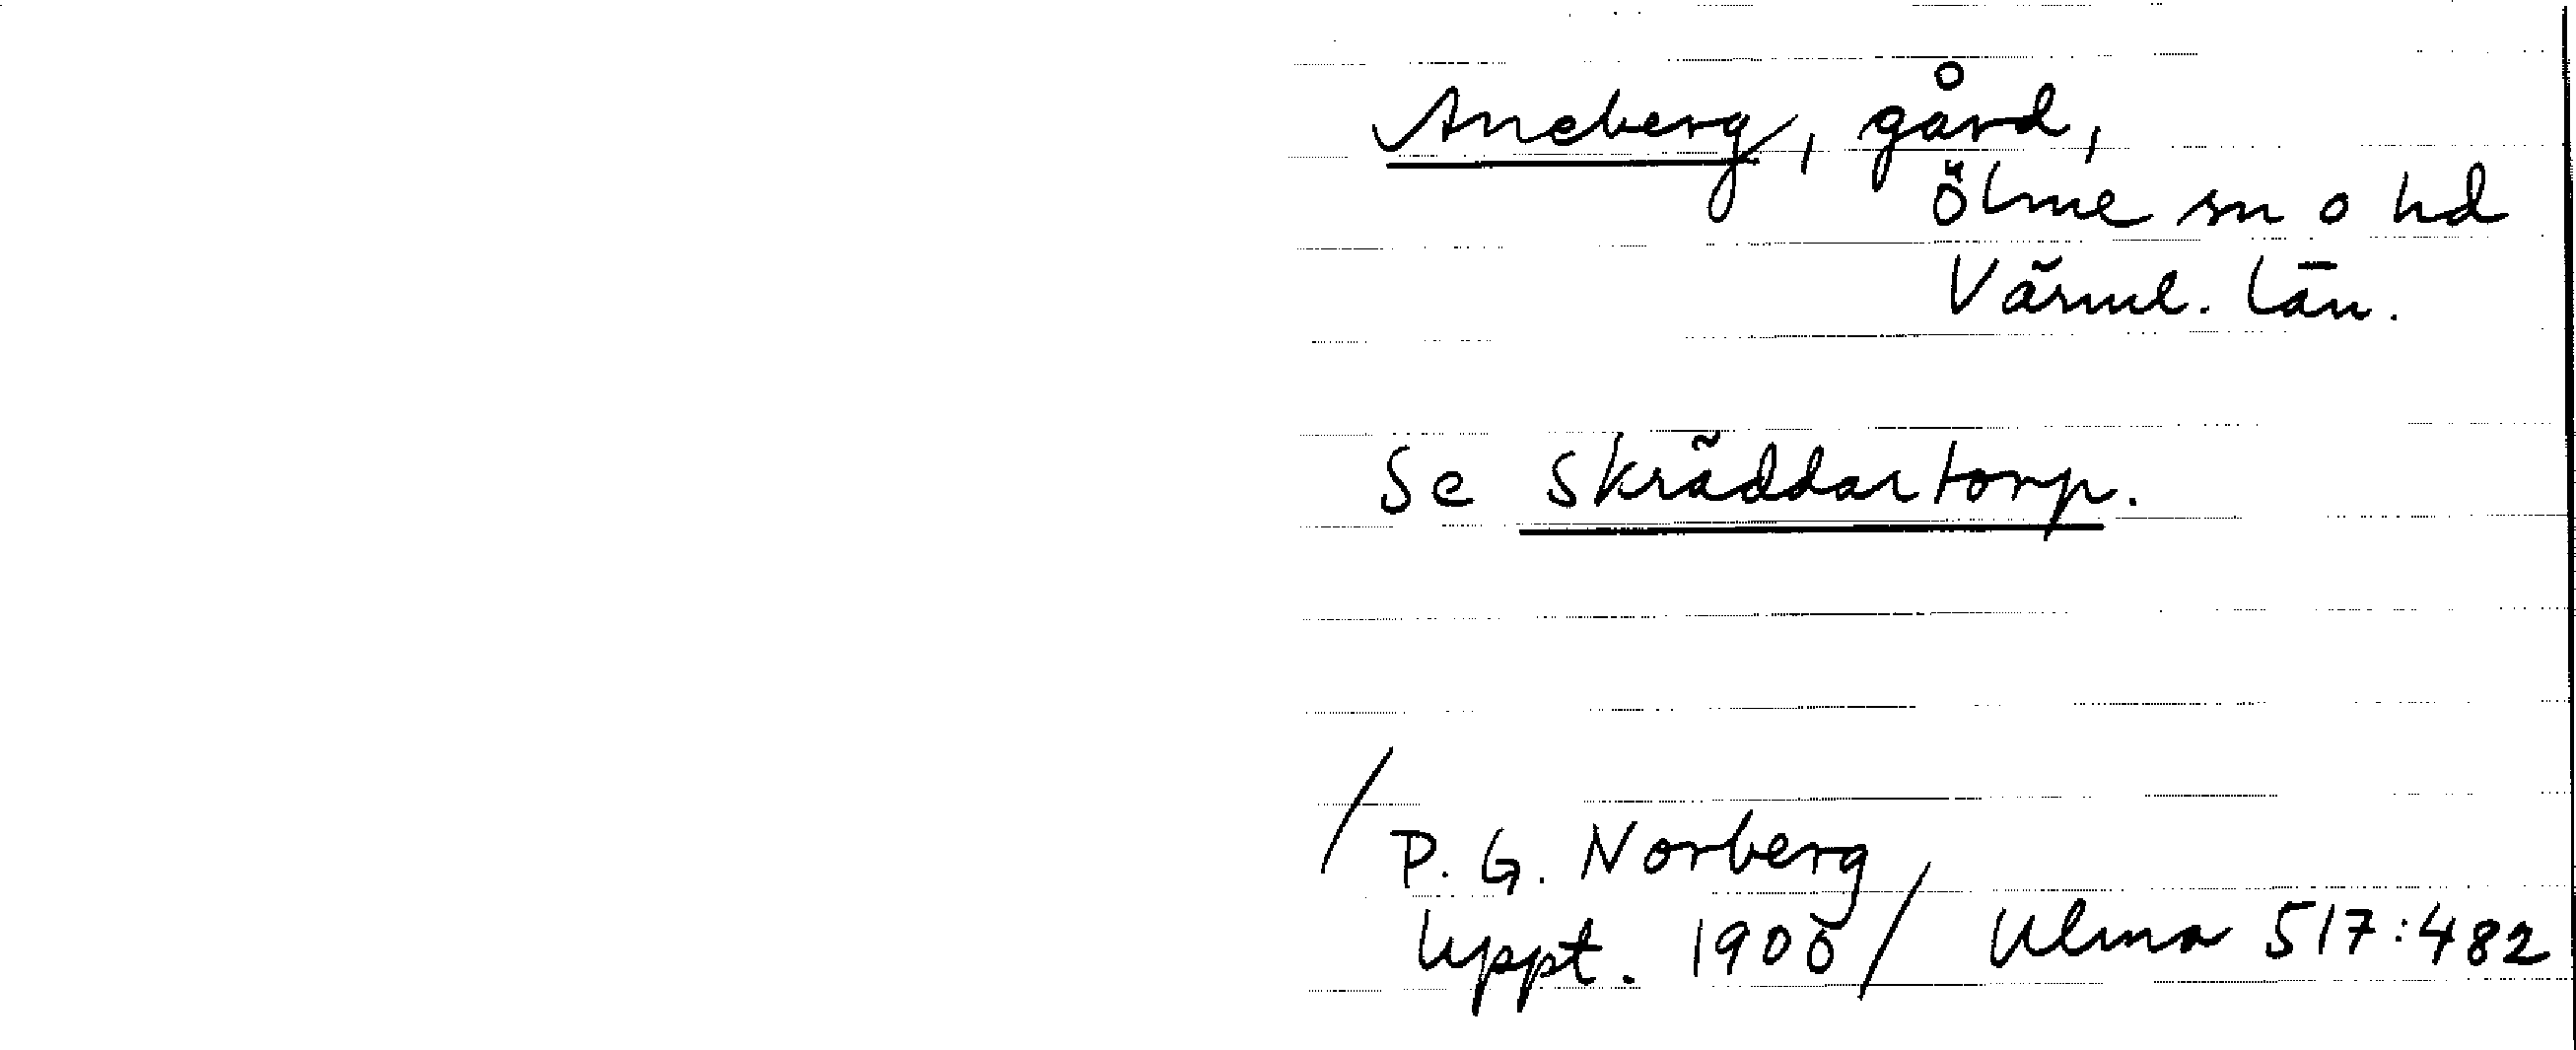 Aneberg, gård,
Ölme sn o hd
Värml. län.
Se Skräddartorp.
/P. G. Norberg
Uppt. 1900/ Ulma 517:482